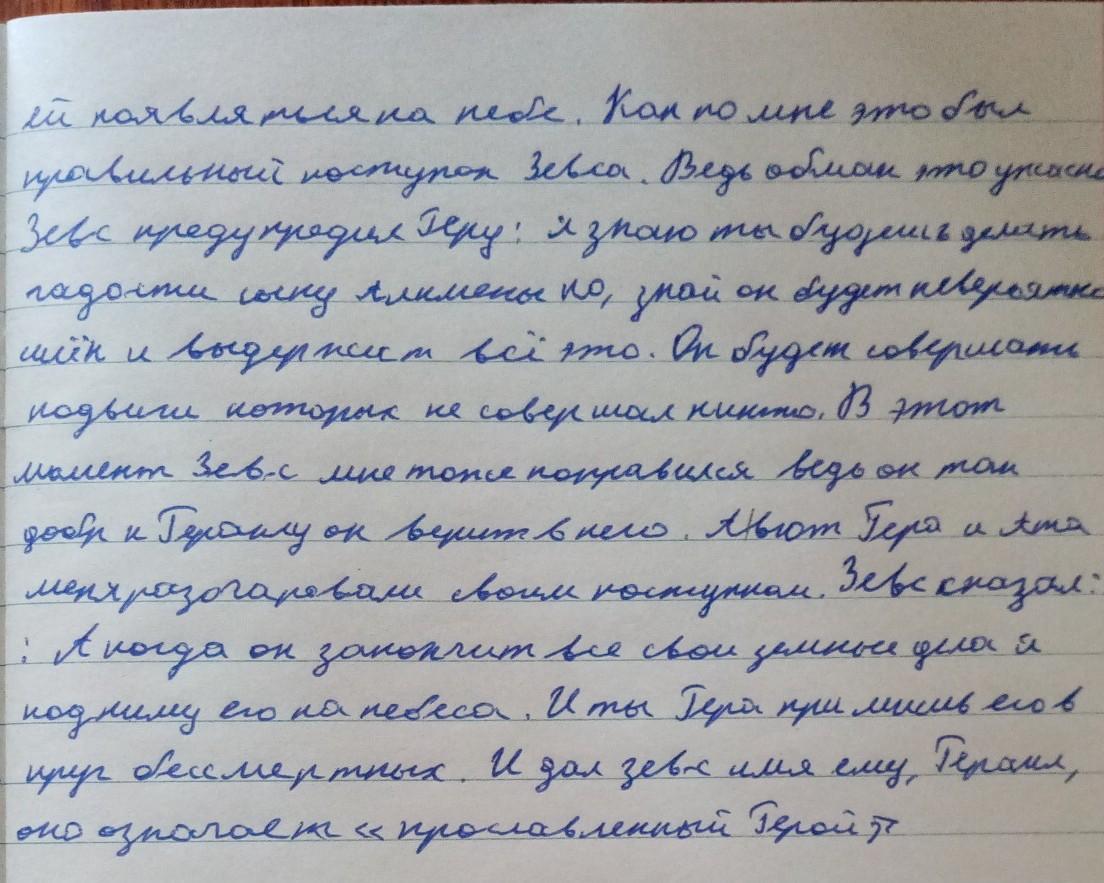 ей появляться на небе. Как по мне это был
правильный поступок Зевса. Ведь обман это ужасно
Зевс предупредил Геру: я знаю ты будешь делать
гадости сыну Алкмены но, знай он будет невероятно
и выдержит всё это. Он будет совершать
подвиги которых не совершал никто. В этот
момент Зевс мне тоже понравился ведь он так
добр к Гераклу он верит в него. А вот Гера и Ата
меня разочаровали своим поступком. Зевс сказал:
: А когда он закончит все свои земные дела я
подниму его на небеса. И ты Гера примишь его в
круг бессмертных. И дал зевс имя ему, Геракл,
оно означает «прославленный Герой»